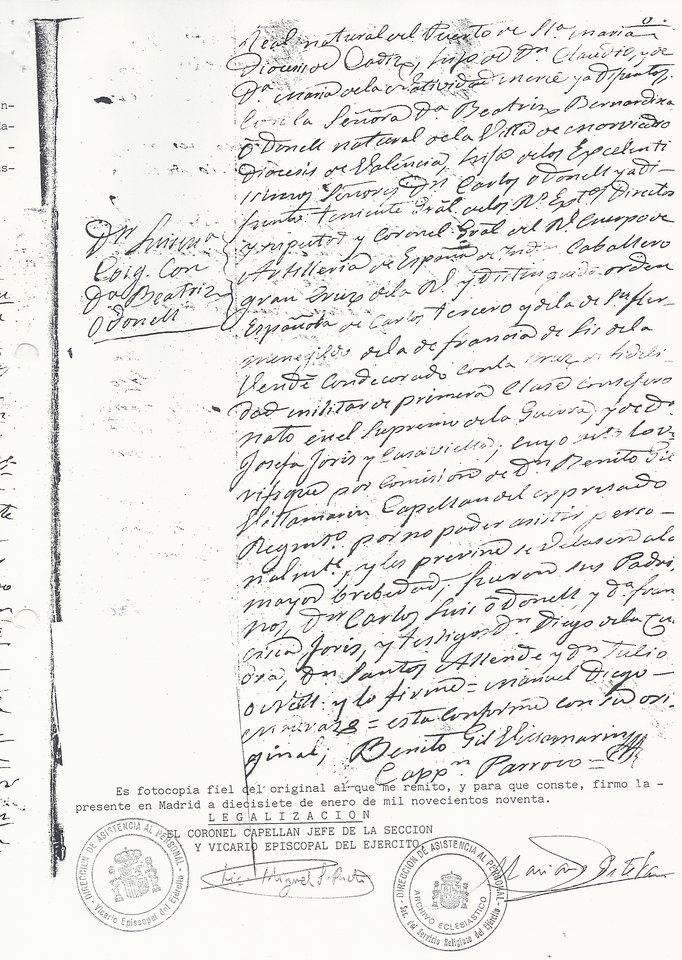 Real natural del Puerto de Sta. Maria
Diocesis de Cadiz, hijo de Dn. Claudio, y de
Da. Maria de la Natividad ya difuntos.
Con la Señora Da. Beatriz Bernardina
ODonell natural de la Villa de Morviedro
Diocesis de Valencia, hija de los Excelenti
simos Señores Dn. Carlos ODonell ya di-
funto Teniente Gral. de los Rs. Extos. Director
y Coronel Gral del Rl. Cuerpo de
Artilleria de España Caballero
gran Cruz de la Rl. y Distinguida orden
Española de Carlos tercero y de la de Sn. Her-
menegildo de la de francia de Lis de la
Vendé Condecorado con la Cruz de fideli
dad militar de primera Clase consejero
nato en el Supremo de la Guerra, y de Da.
Josefa Joris y Casaviella, cuyo
por Comision de Dn. Benito Gil
Capellan del expresado
Regimto. por no poder asistir perso-
nalmte., y les previne se velasen a la
mayor brebedad, fueron sus Padri
nos, Dn. Carlos Luis ODonell y Da. fran
cisca Joris, y testigos Dn. Diego de la
Dn. Santos Allende y Dn. Tulio
o Neill: y lo firmé = Manuel Diego
= esta Conforme con su ori-
ginal; Benito Gil
Cappn. Parroco =
Dn
Coig. Con
Da. Beatriz
ODonell
Es fotocopia fiel del original al que me remito, y para que conste, firmo la -
presente en Madrid a diecisiete de enero de mil novecientos noventa.
L E G A L I Z A C I O N
EL CORONEL CAPELLAN JEFE DE LA SECCION
Y VICARIO EPISCOPAL DEL EJERCITO,
DIRECCION DE ASISTENCIA AL PERSONAL
Vicario Episcopal del Ejército
DIRECCION DE ASISTENCIA AL PERSONAL
ARCHIVO ECLESIASTICO
del Servicio Religioso del Ejército